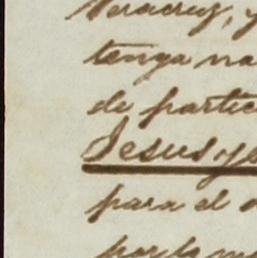 Veracruz, y
tenga na
de partic
Jesus y
para el
por la